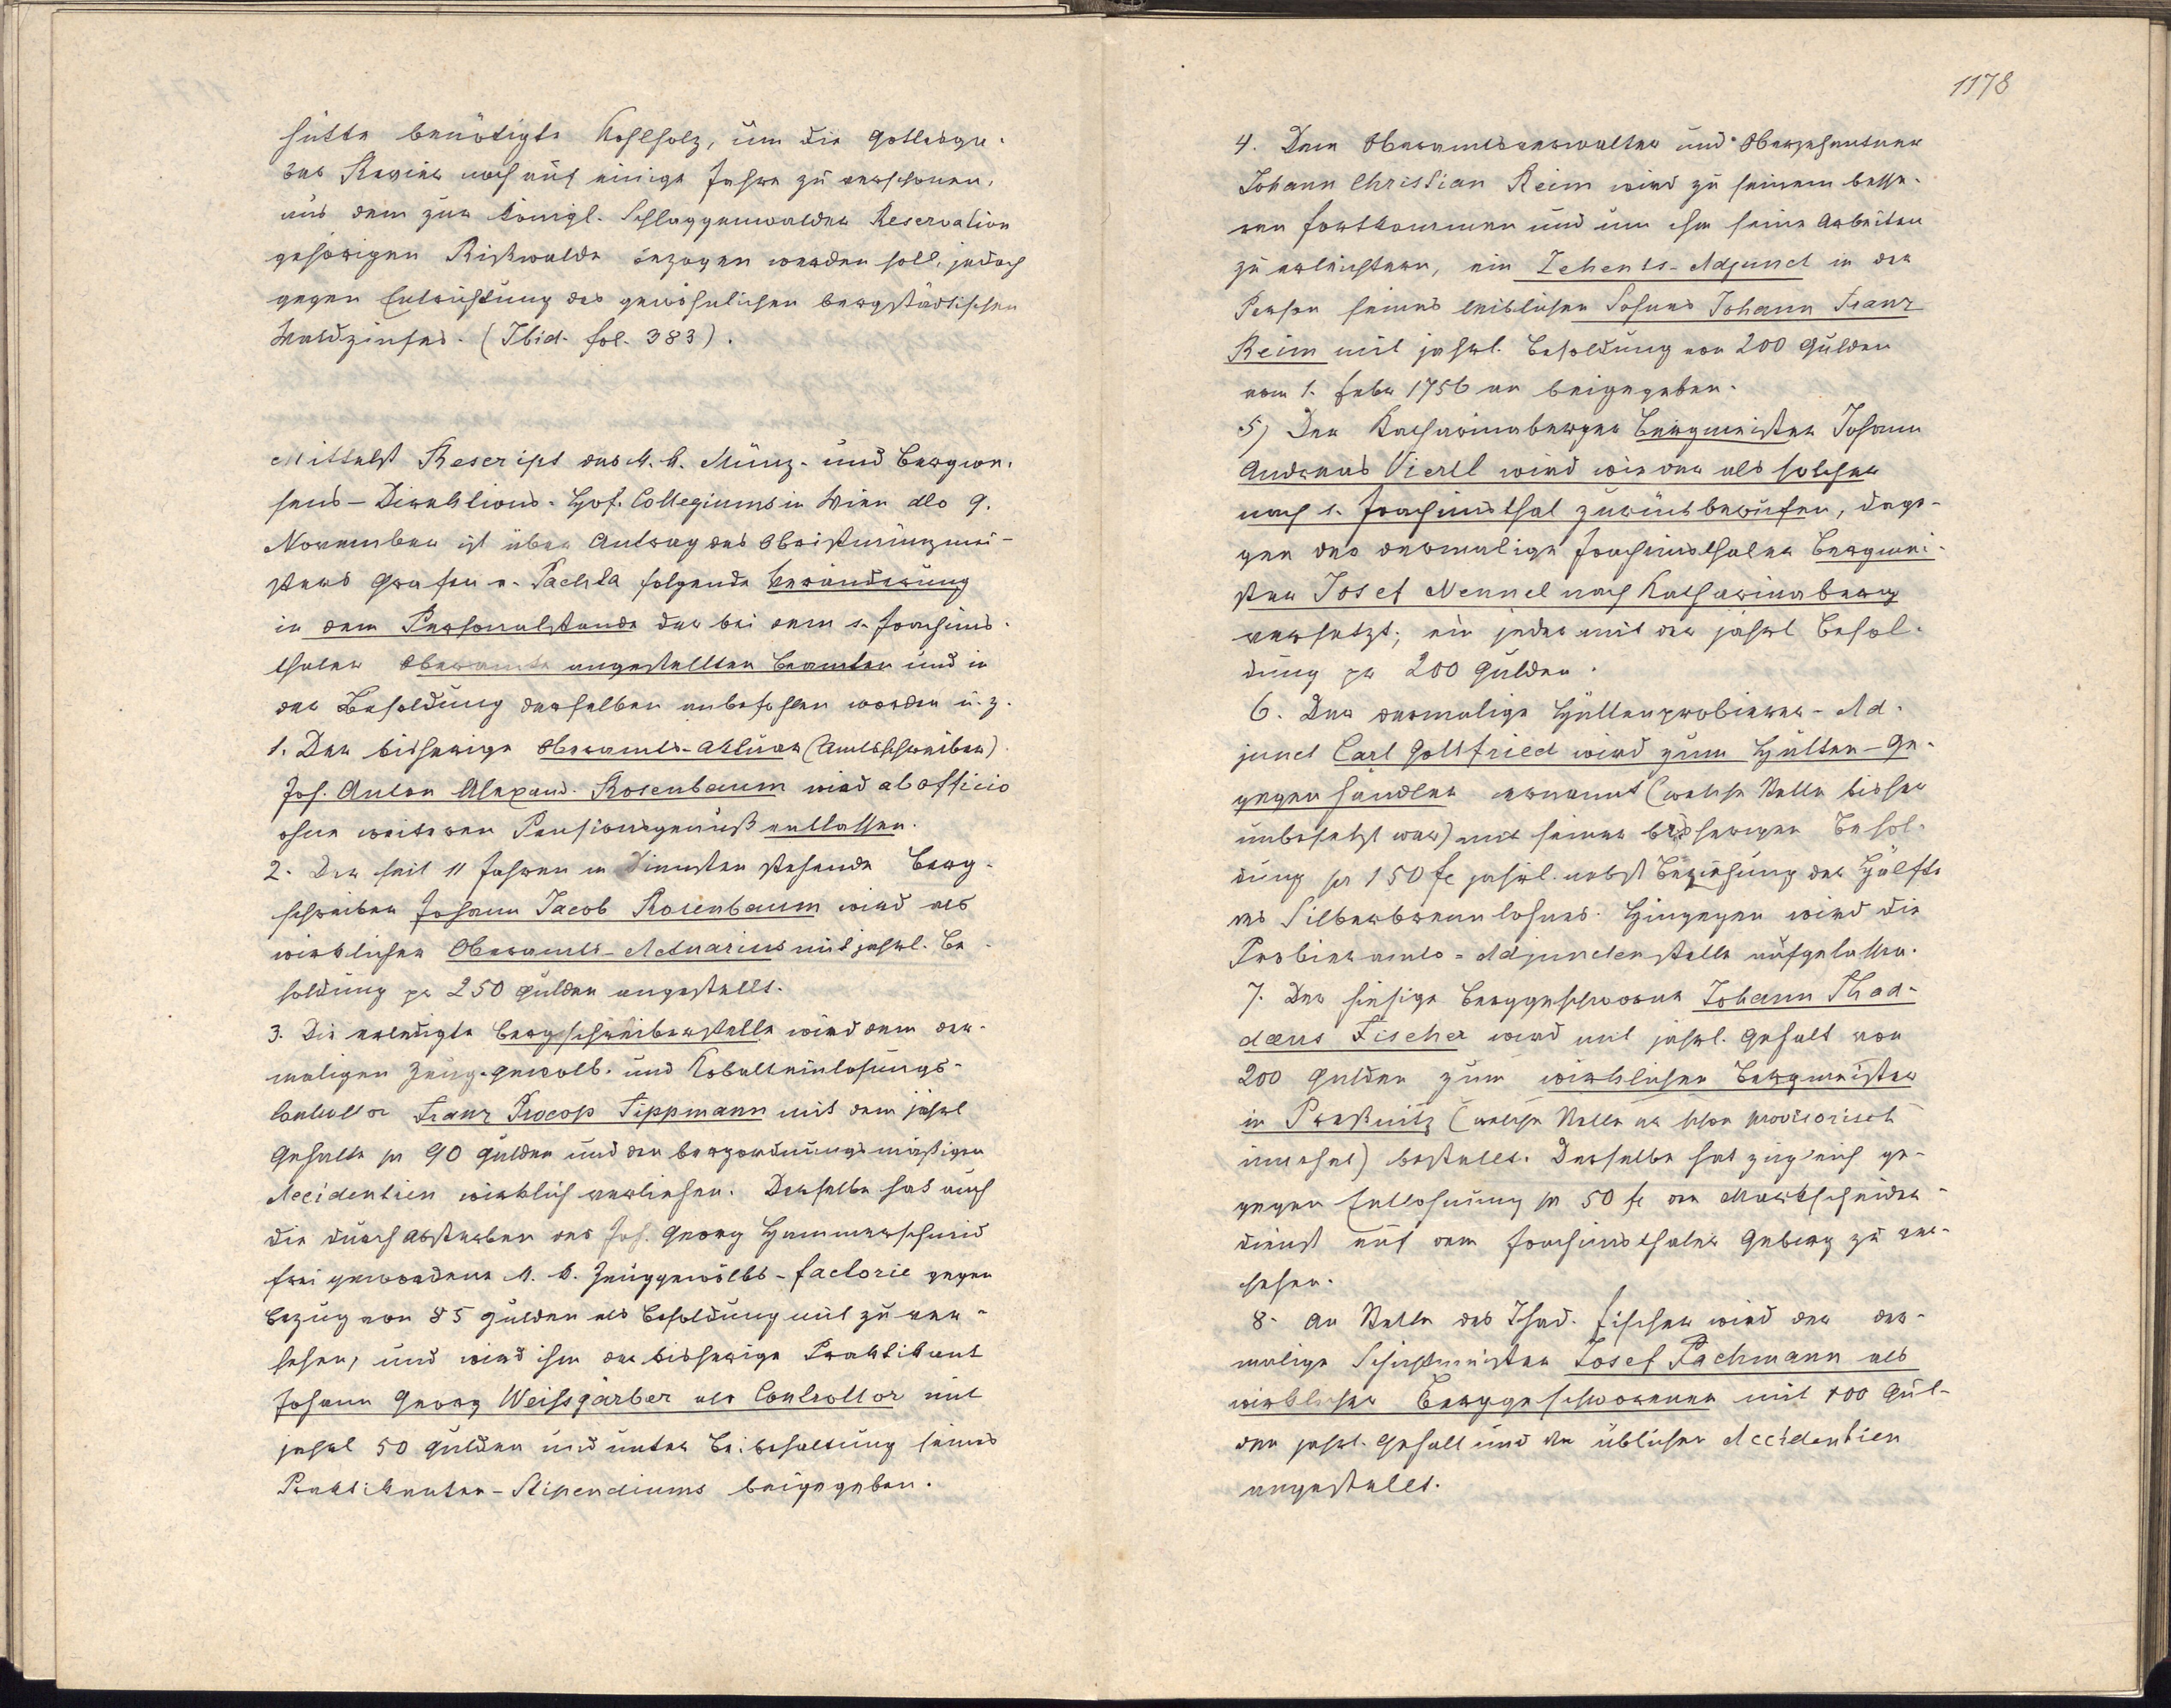 hütte benötigte Kohlholz, um die Gottesga-
ber Revier noch auf einige Jahre zu verschonen,
aus dem zur königl. Schlaggenwalder Reservation
gehörigen Rißwalde bezogen werden soll, jedoch
gegen Entrichtung des gewöhnlichen bergstädtischen
Waldzinses. (Ibid. fol. 383).
Mittelst Rescript des k. k. Münz- und Bergwe-
sens-Direktions-Hof-Collegiums in Wien dto 9.
November ist über Antrag des Obristmünzmei-
sters Grafen v. Pachta folgende Veränderung
in dem Personalstande der bei dem s. Joachims-
thaler Oberamte angestellten Beamten und in
der Besoldung derselben anbefohlen worden u. z.
1. Der bisherige Oberamts-Aktuar (Amtsschreiber)
Joh. Anton Alexand. Rosenbaum wird ab officio
ohne weiteren Pensionsgenuß entlassen.
2. Der seit 11 Jahren in Diensten stehende Berg-
schreiber Johann Jacob Rosenbaum wird als
wirklicher Oberamts-Actuarius mit jährl. Be-
soldung pr 250 Gulden angestellt.
3. Die erledigte Bergschreiberstelle wird dem der-
maligen Zeug-gewölb- und Kobalteinlösungs-
Controllor Franz Procop Tippmann mit dem jährl
Gehalte pr 90 Gulden und den bergordnungsmäßigen
Accidentien wirklich verliehen. Derselbe hat auch
die durch Absterben des Joh. Georg Hammerschmid
frei gewordene k. k. Zeuggewölbs-factorie gegen
Bezug von 85 Gulden als Besoldung mit zu ver-
sehen, und wird ihm der bisherige Praktikant
Johann Georg Weissgärber als Controllor mit
jährl 50 Gulden und unter Beibehaltung seines
Praktikanten-Stipendiums beigegeben.
1178
4. Dem Oberamtsverwalter und Oberzehentner
Johann Christian Reim wird zu seinem besse-
ren Fortkommen und um ihm seine Arbeiten
zu erleichtern, ein Zehents-Adjunct in der
Person seines leiblichen Sohnes Johann Franz
Reim mit jährl. Besoldung von 200 Gulden
vom 1. Feber 1756 an beigegeben.
5) Der Katharinaberger Bergmeister Johann
Andreas Viertl wird wieder als solcher
nach s. Joachimsthal zurückberufen, dage-
gen der dermalige Joachimsthaler Bergmei-
ster Josef Nennel nach Katharinaberg
versetzt; ein jeder mit der jährl Besol-
dung pr 200 Gulden.
6. Der dermalige Hüttenprobierer-Ad-
junct Carl Gottfried wird zum Hütten-Ge-
gegenhandler ernannt (welche Stelle bisher
unbesetzt war) mit seiner bisherigen Besol-
dung pr 150 fl jährl. nebst Beziehung der Hälfte
des Silberbrennlohnes. Hingegen wird die
Probieramts-Adjunctenstelle aufgelassen.
7. Der hiesige Berggeschworne Johann Thad-
daeus Fischer wird mit jährl. Gehalt von
200 Gulden zum wirklichen Bergmeister
in Preßnitz (welche Stelle er schon provisorisch
innehat) bestellt. Derselbe hat zugleich ge-
gegen Entlohnung pr 50 fl den Markscheider-
dienst auf dem Joachimsthaler Gebirg zu ver-
sehen.
8. An Stelle des Thad. Fischer wird der der-
malige Schichtmeister Josef Pachmann als
wirklicher Berggeschworener mit 100 Gul-
den jährl. Gehalt und den üblichen Accidentien
angestellt.